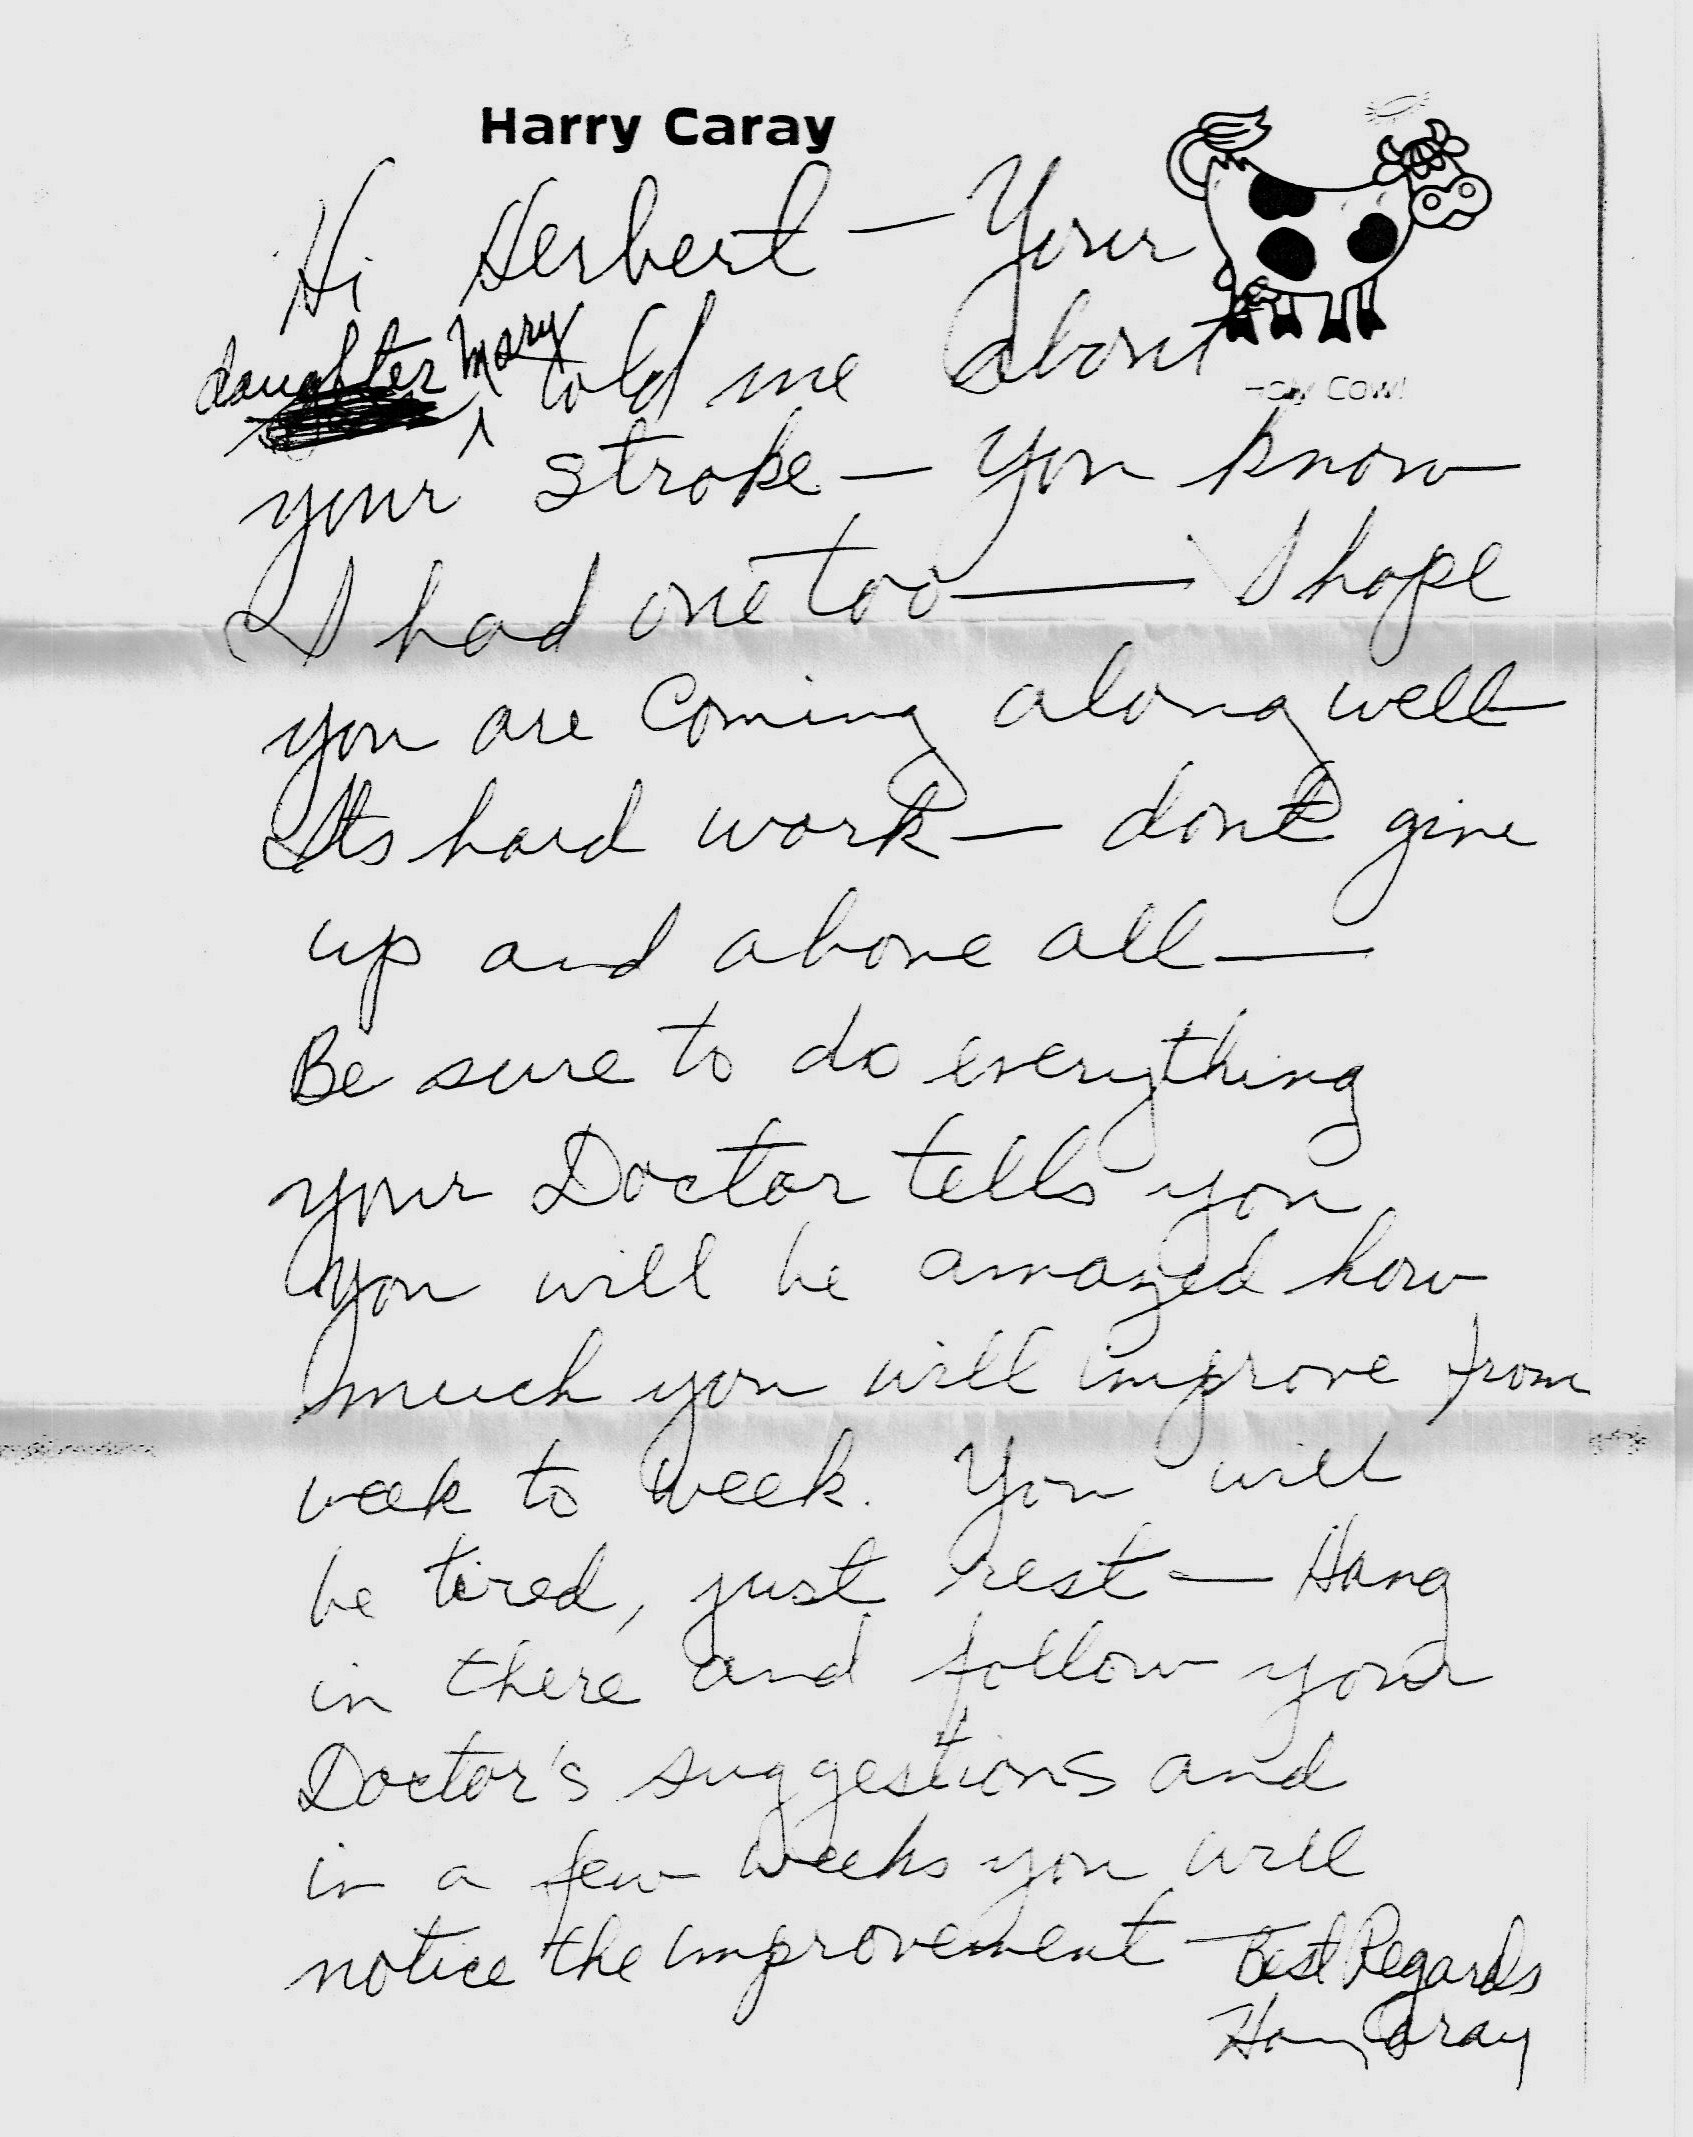 Harry Caray
Hi Herbert — Your
daughter Mary told me about
Holy Cow!
your stroke — you know
I had one too — I hope
you are coming along well
Its hard work — dont give
up and above all —
Be sure to do everything
your Doctor tells you
You will be amazed how
much you will improve from
week to week. You will
be tired, just rest — Hang
in there and follow your
Doctor's suggestions and
in a few weeks you will
notice the improvement — Best Regards
Harry Caray